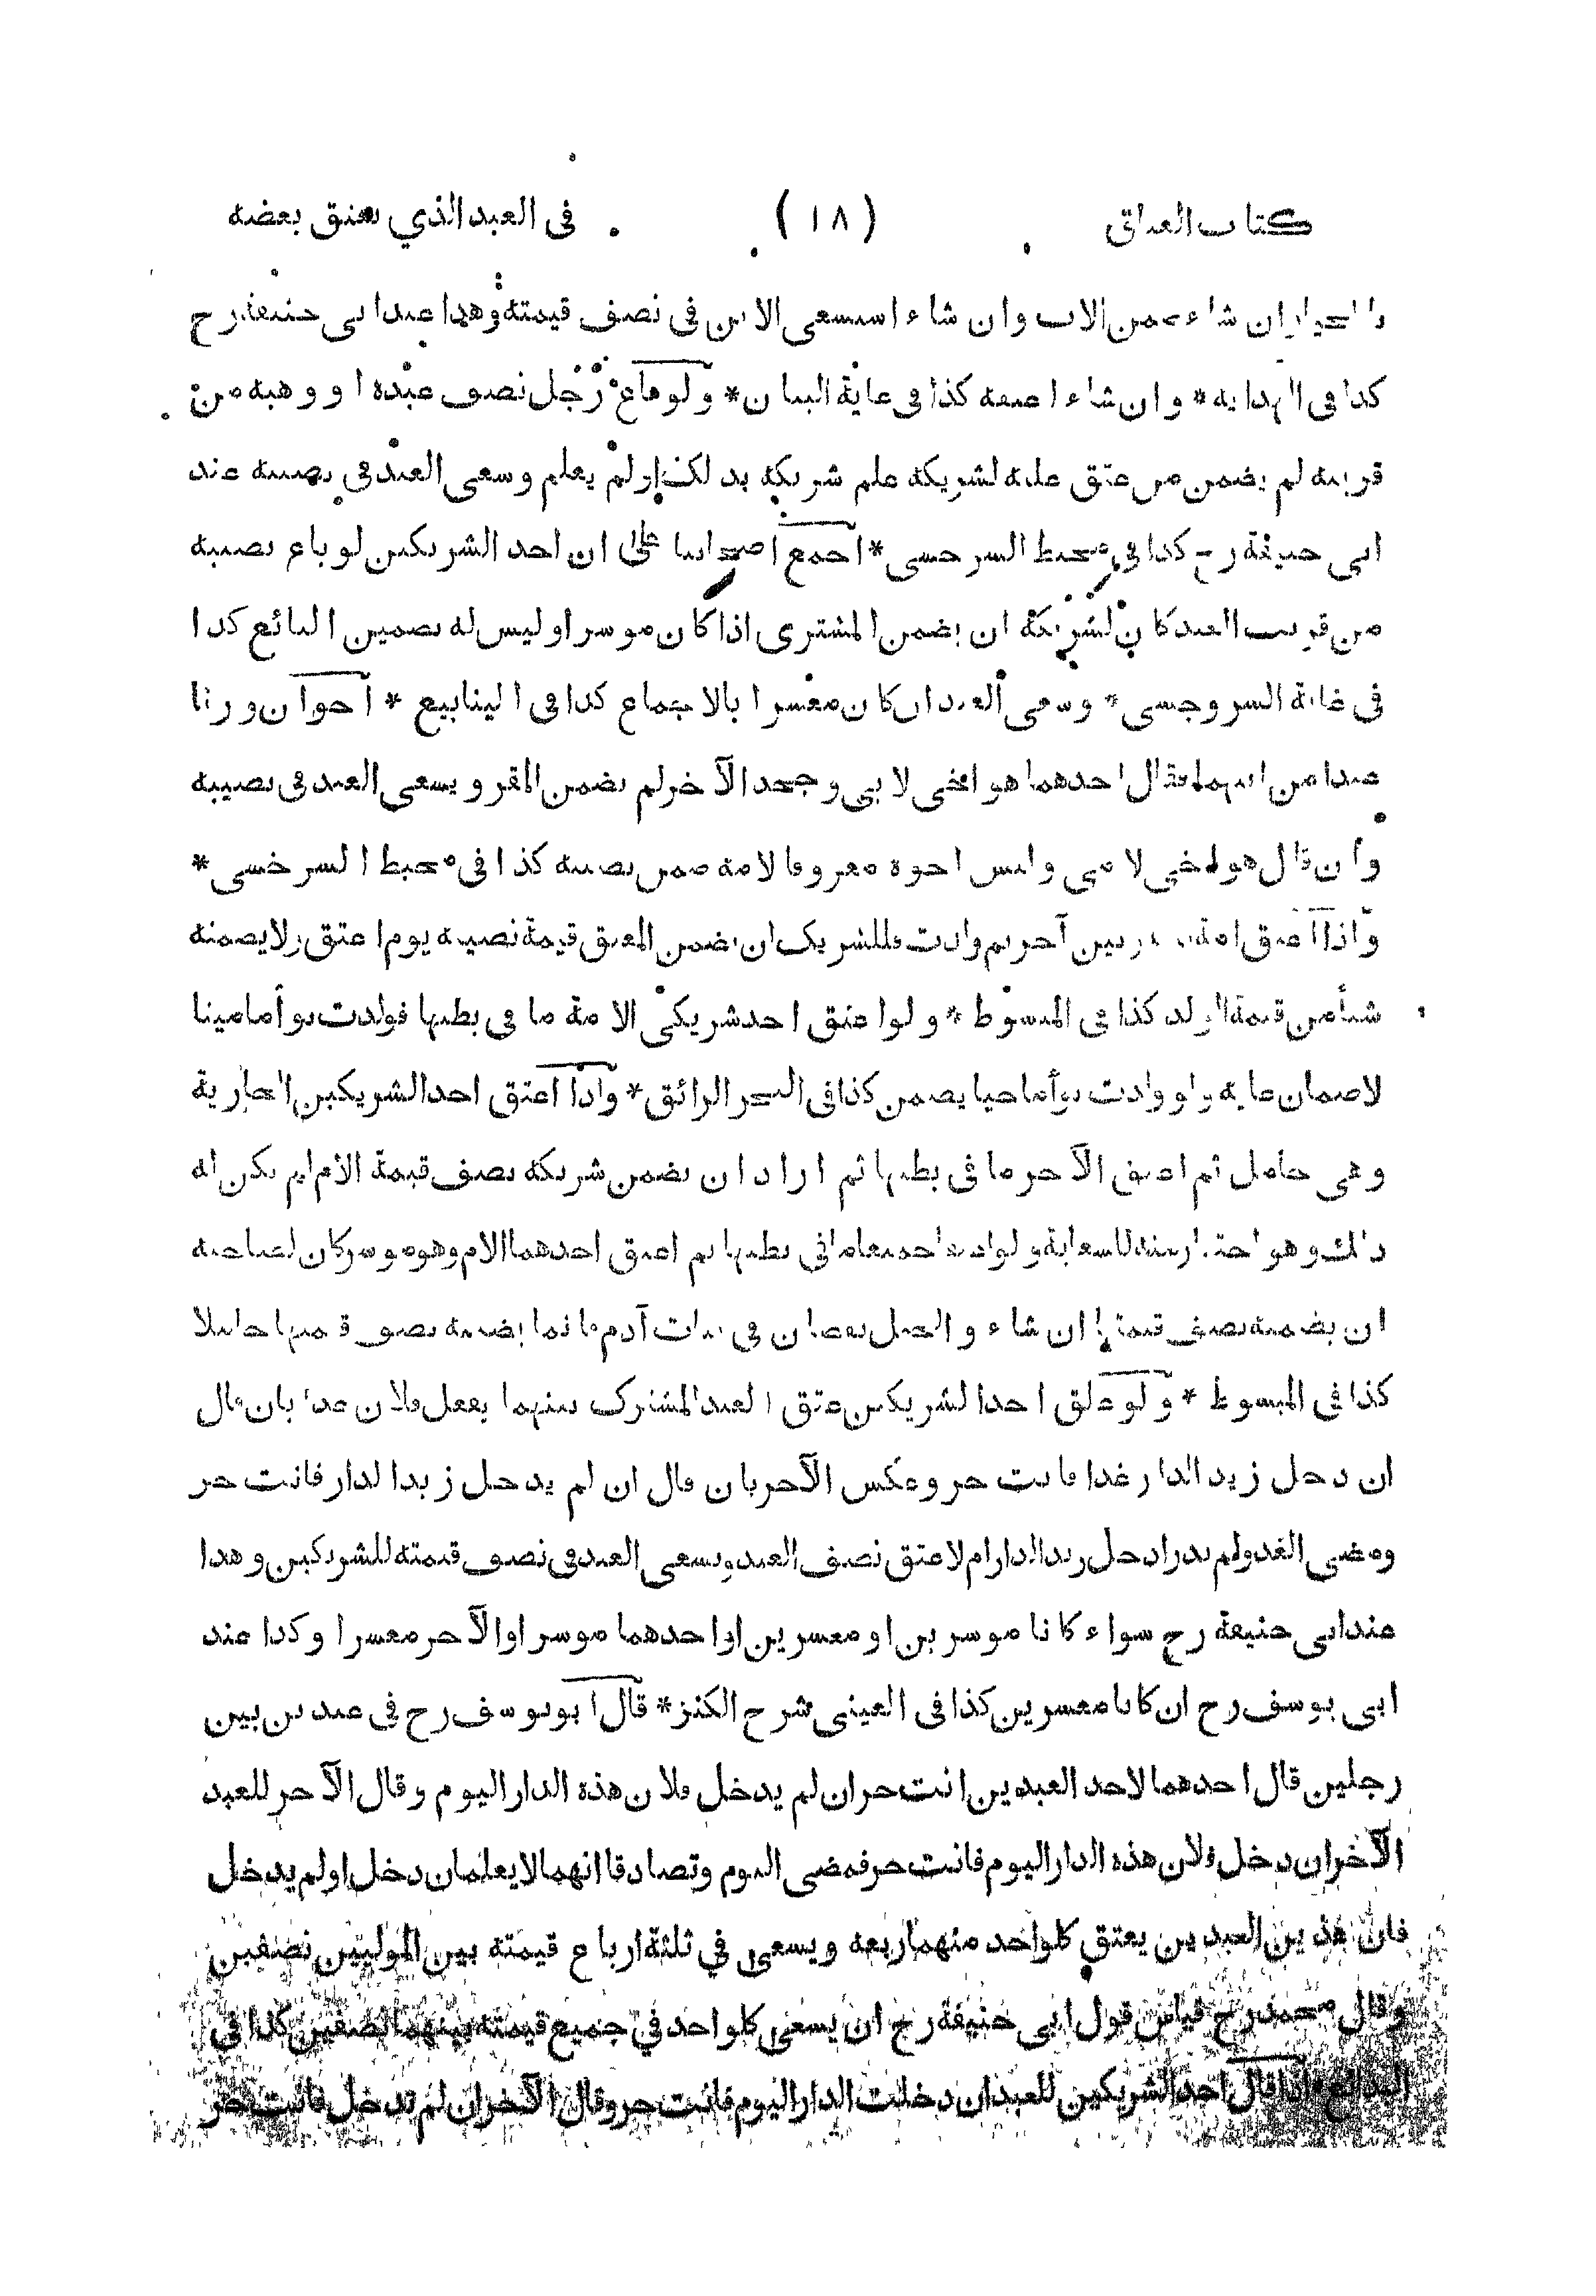 كتاب العتاق (١٨) فى العبد الذي يعتق بعضه
بالخيار ان شاء ضمن الاب وان شاء استسعى الابن فى نصف قيمته وهذا عند ابى حنيفة رح
كذا فى الهداية * وان شاء اعتقه كذا فى غاية البيان * ولو باع رجل نصف عبده او وهبه من
قريبه لم يضمن من عتق عليه لشريكه علم شريكه بذلك او لم يعلم وسعى العبد فى نصيبه عند
ابى حنيفة رح كذا فى محيط السرخسى * اجمع اصحابنا على ان احد الشريكين لو باع نصيبه
من قريب العبد كان لشريكه ان يضمن المشترى اذا كان موسرا وليس له تضمين البائع كذا
فى غاية السروجى * وسعى العبد ان كان معسرا بالاجماع كذا فى الينابيع * اخوان ورثا
عبدا من ابيهما فقال احدهما هو اخى لابى وجحد الآخر لم يضمن المقر ويسعى العبد فى نصيبه
وان قال هو اخى لامى وليس اخوه معروفا لامه ضمن نصيبه كذا فى محيط السرخسى *
واذا اعتق امة بينه وبين آخر ثم ولدت فللشريك ان يضمن المعتق قيمة نصيبه يوم اعتق ولا يضمنه
شيأ من قيمة الولد كذا فى المبسوط * ولو اعتق احد شريكى الامة ما فى بطنها فولدت توأما ميتا
لا ضمان عليه ولو ولدت توأما حيا يضمن كذا فى البحر الرائق * واذا اعتق احد الشريكين الجارية
وهى حامل ثم اعتق الآخر ما فى بطنها ثم اراد ان يضمن شريكه نصف قيمة الام لم يكن له
ذلك وهو اختيار منه للسعاية ولو اعتقا جميعا ما فى بطنها ثم اعتق احدهما الام وهو موسر كان لصاحبه
ان يضمنه نصف قيمتها ان شاء والحبل نقصان فى بنات آدم فانما يضمنه نصف قيمتها حاملا
كذا فى المبسوط * ولو علق احد الشريكين عتق العبد المشترك بينهما بفعل فلان غدا بان قال
ان دخل زيد الدار غدا فانت حر وعكس الآخر بان قال ان لم يدخل زيد الدار فانت حر
ومضى الغد ولم يدر ادخل زيد الدار ام لا عتق نصف العبد ويسعى العبد فى نصف قيمته للشريكين وهذا
عند ابى حنيفة رح سواء كانا موسرين او معسرين او احدهما موسرا والآخر معسرا وكذا عند
ابى يوسف رح ان كانا معسرين كذا فى العينى شرح الكنز * قال ابو يوسف رح فى عبدين بين
رجلين قال احدهما لاحد العبدين انت حر ان لم يدخل فلان هذه الدار اليوم وقال الآخر للعبد
الآخر ان دخل فلان هذه الدار اليوم فانت حر فمضى اليوم وتصادقا انهما لا يعلمان دخل او لم يدخل
فان هذين العبدين يعتق كل واحد منهما ربعه ويسعى في ثلثة ارباع قيمته بين الموليين نصفين
وقال محمد رح قياس قول ابى حنيفة رح ان يسعى كل واحد في جميع قيمته بينهما نصفين كذا فى
البدائع * اذا قال احد الشريكين للعبد ان دخلت الدار اليوم فانت حر وقال الآخر ان لم تدخل فانت حر